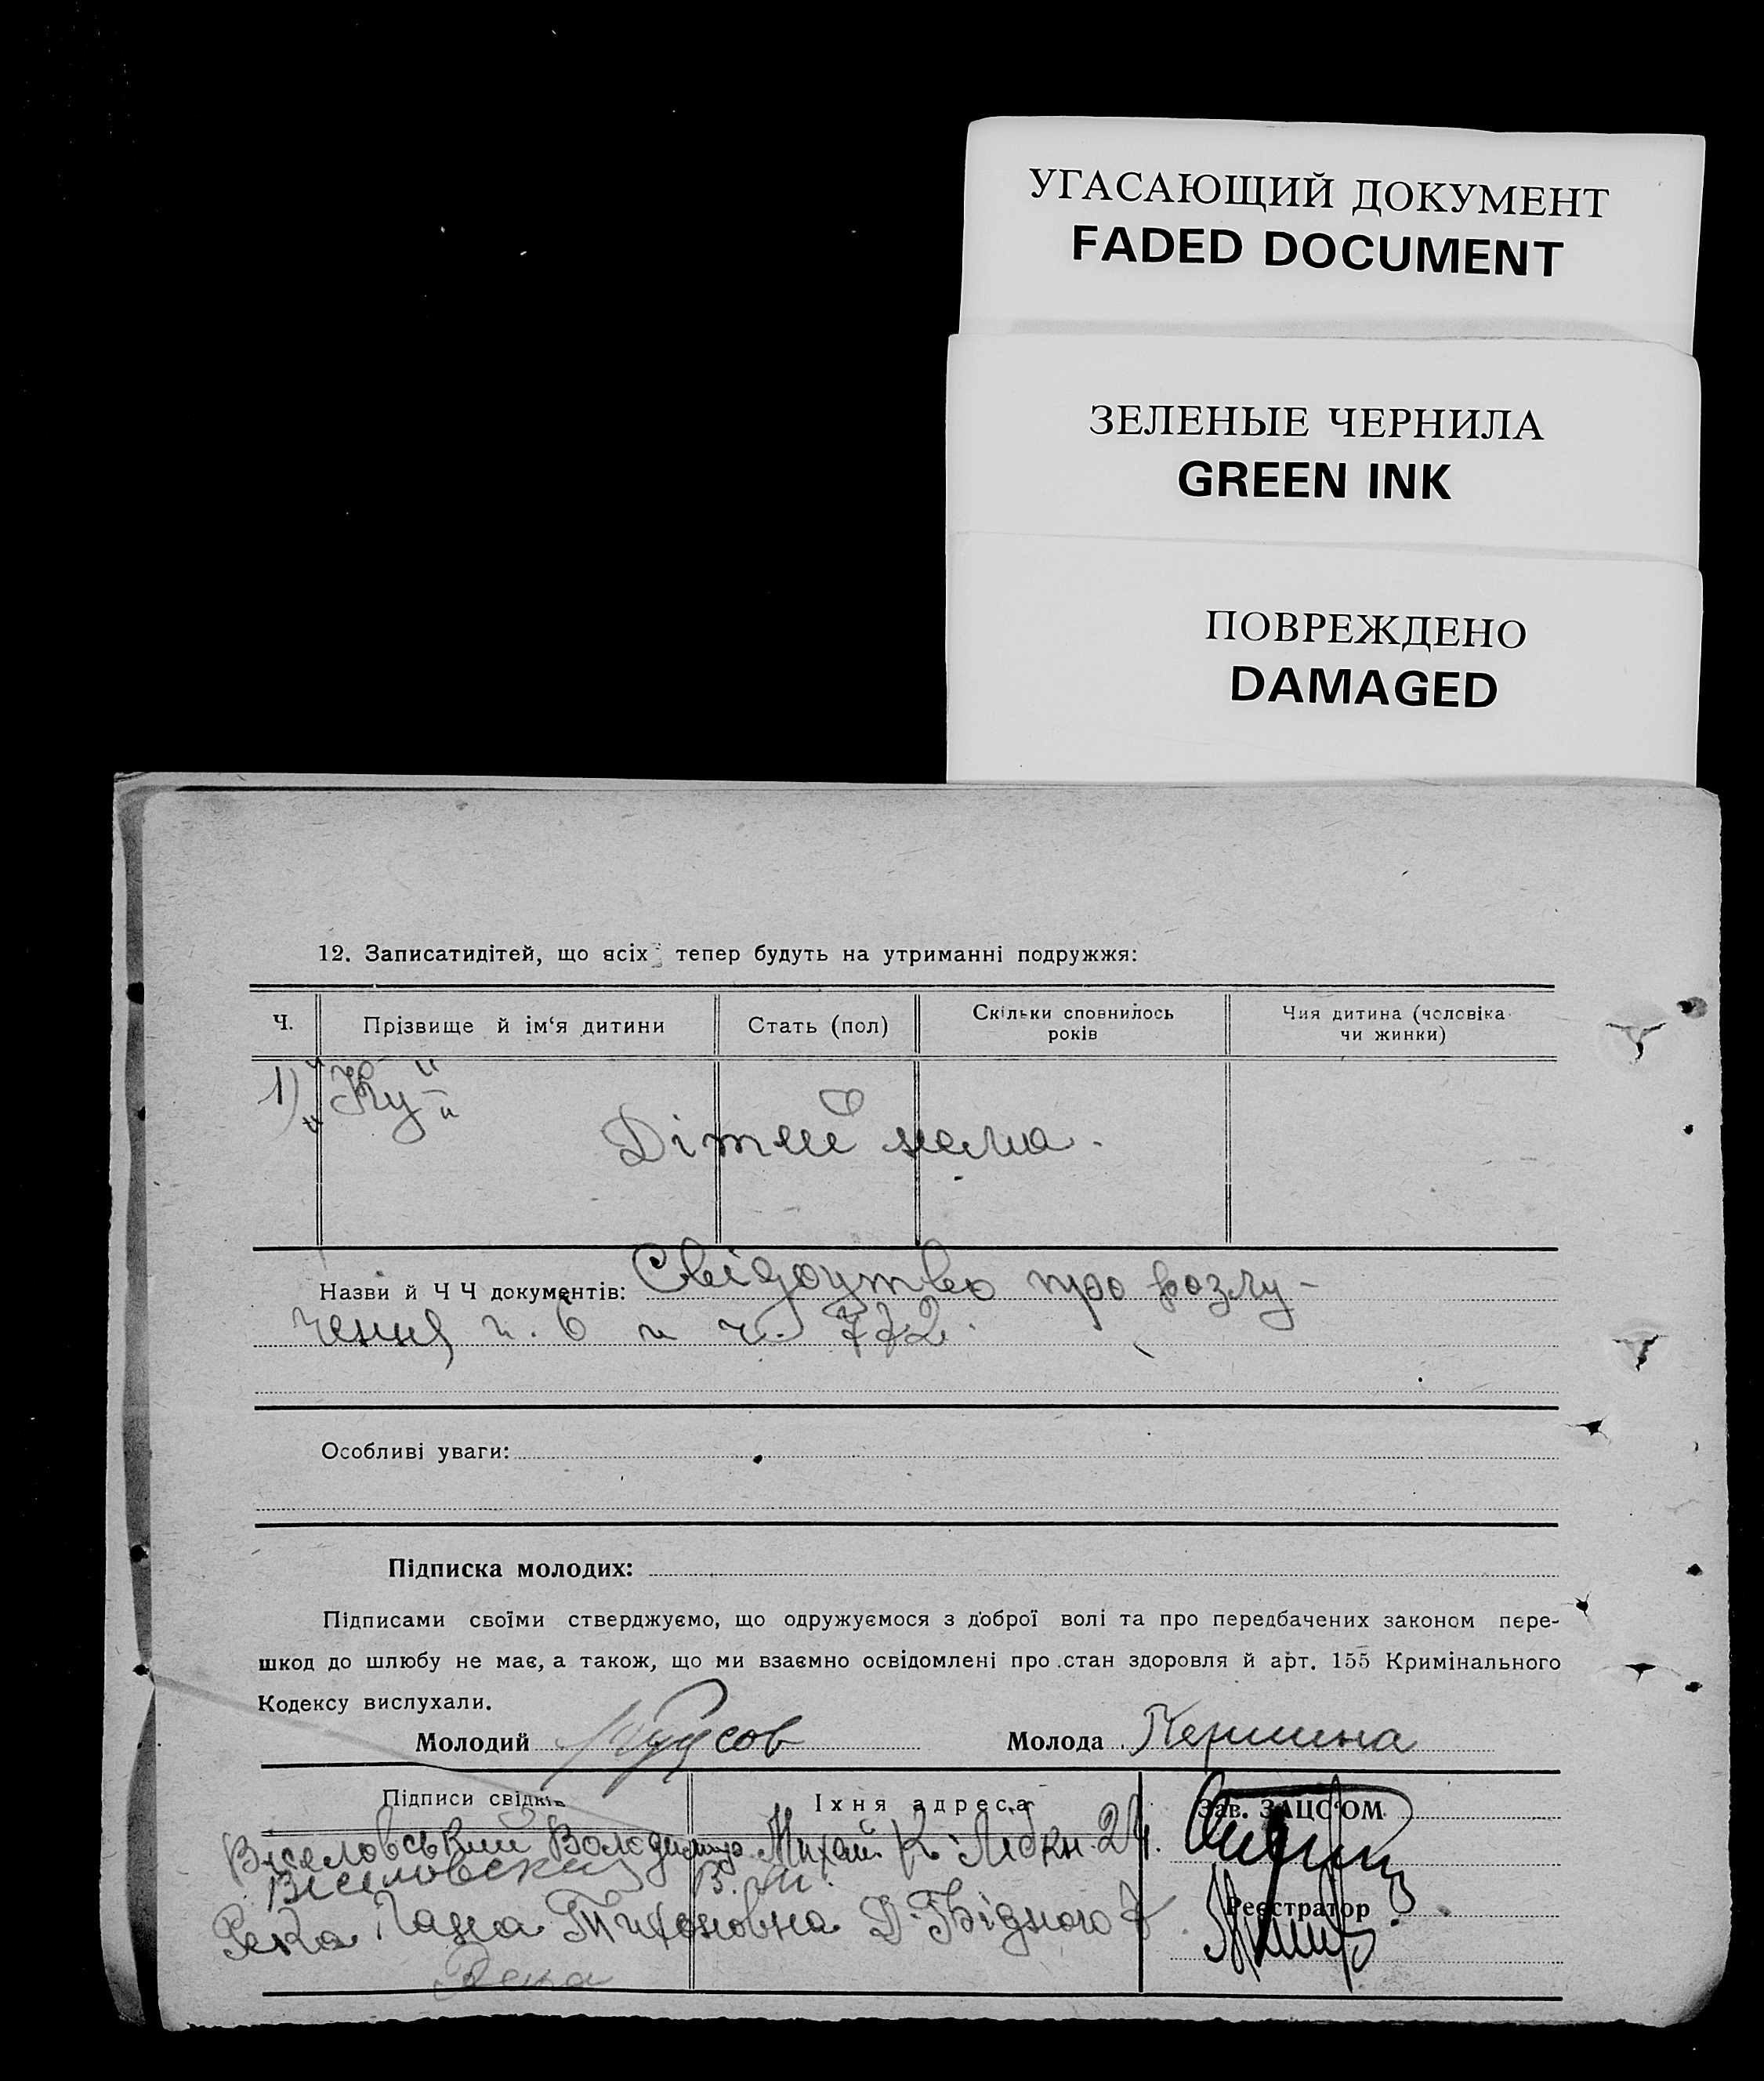 УГАСАЮЩИЙ ДОКУМЕНТ
FADED DOCUMENT
ЗЕЛЕНЫЕ ЧЕРНИЛА
GREEN INK
ПОВРЕЖДЕНО
DAMAGED
12. Записатидітей, що всіх тепер будуть на утриманні подружжя:
Ч.
Прізвище й ім‘я дитини
Стать (пол)
Скільки сповнилось років
Чия дитина (чоловіка чи жинки)
1)
Дітей нема.
Назви й Ч Ч документів: Свідоцтво про розлу-
чення ч. 772.
Особливі уваги:
Підписка молодих:
Підписами своїми стверджуємо, що одружуємося з доброї волі та про передбачених законом пере-
шкод до шлюбу не має, а також, що ми взаємно освідомлені про стан здоровля й арт. 155 Кримінального
Кодексу вислухали.
Молодий Молода Першина
Підписи свідків
Іхня адреса
Зав. ЗАЦС‘ОМ
Віселовський Володимир Михай. К. Лібкн. 24.
Віселовский В. М.
Река Гана Тихоновна Д-Бідного
Реєстратор
Река